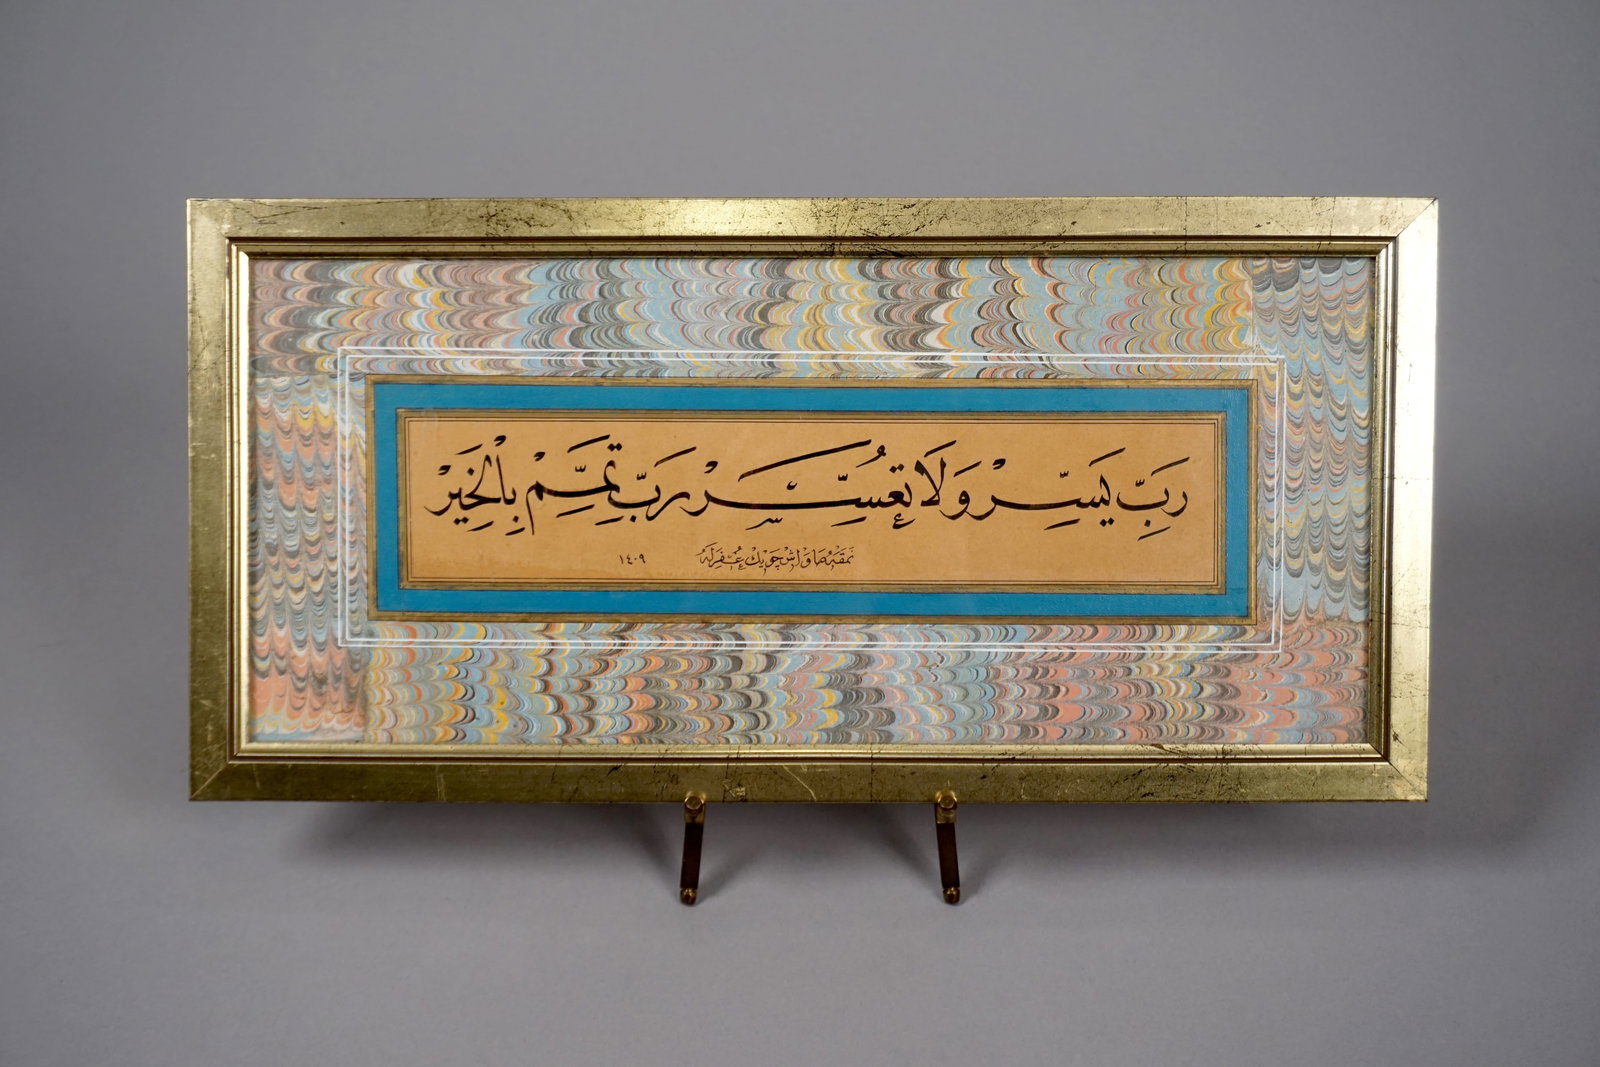 رَبِّ يَسِّرْ وَلَا تُعَسِّرْ رَبِّ تَمِّمْ بِالْخَيْرِ
نمقه داوش جويك غفر له ١٤٠٩